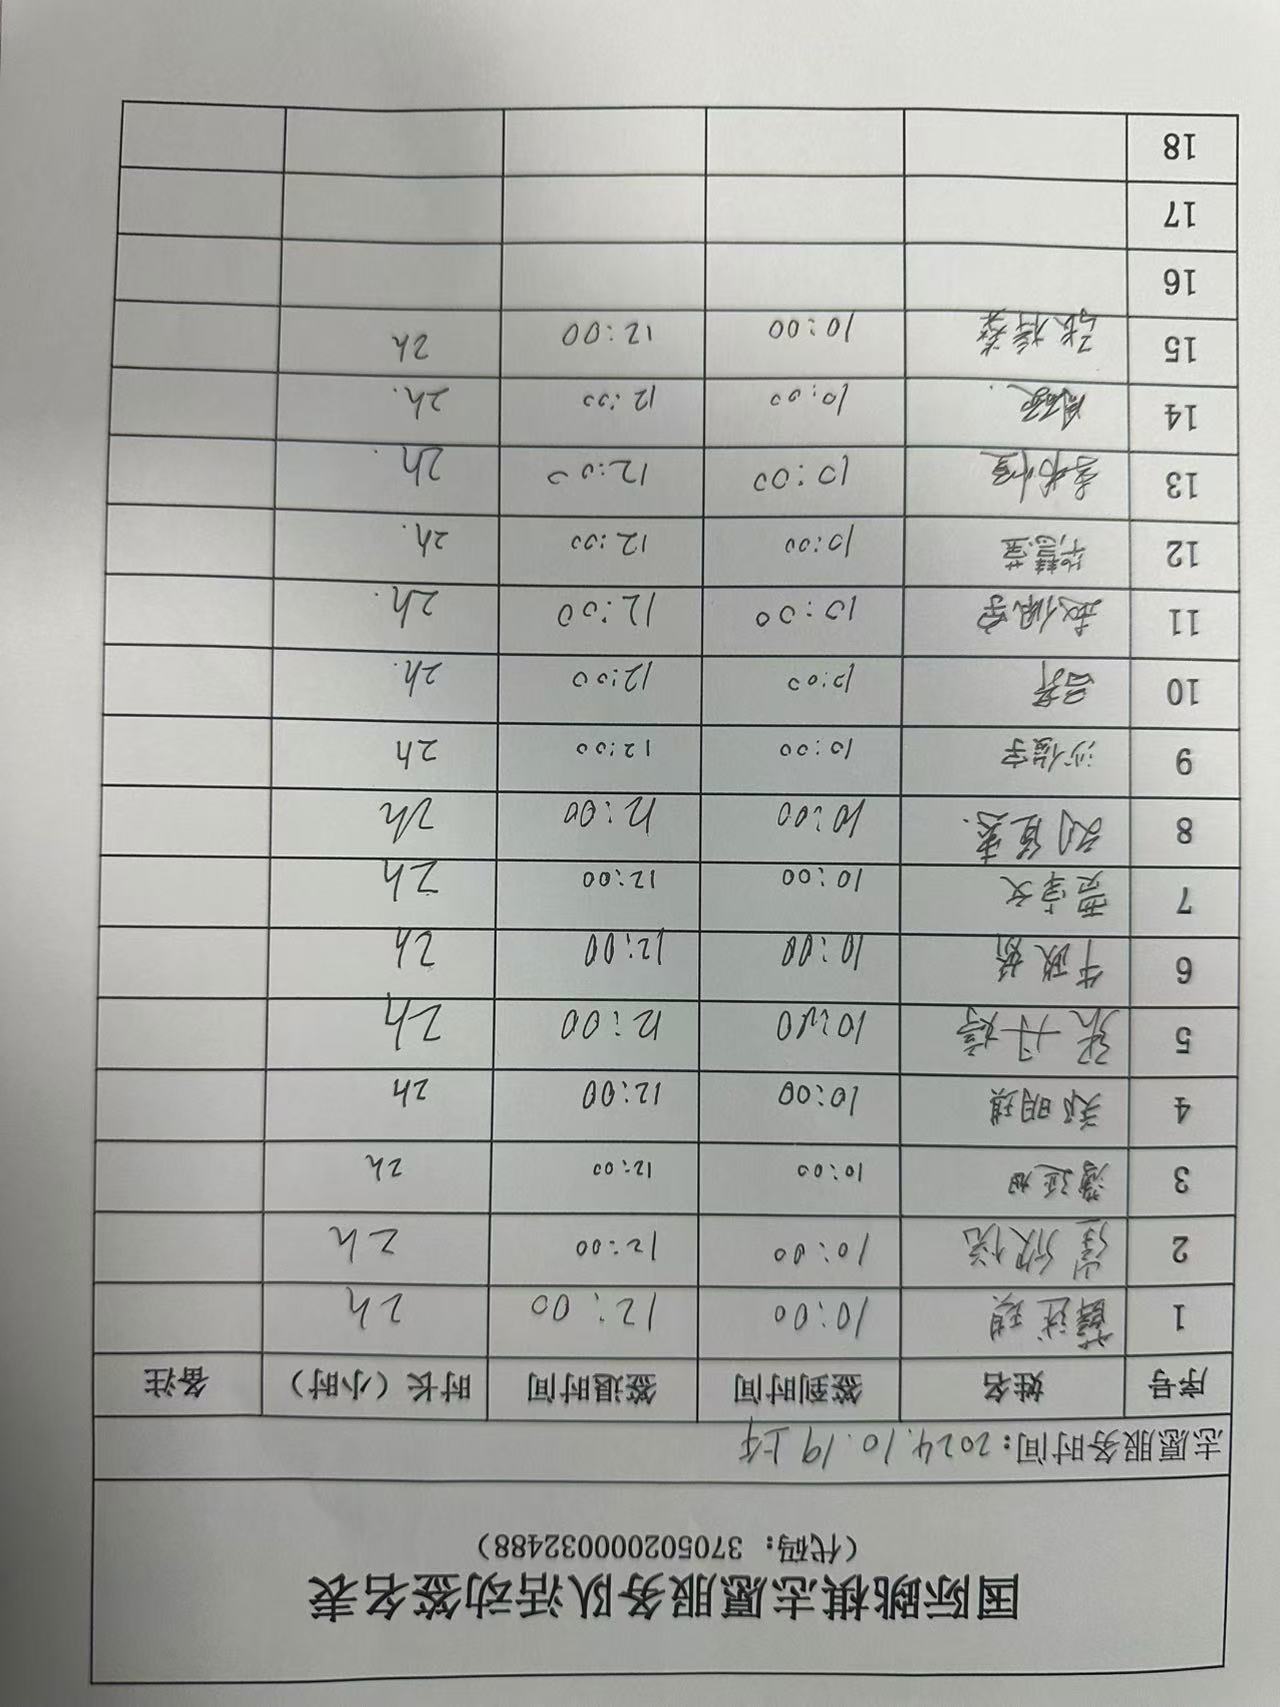 国际跳棋志愿服务队活动签名表
（代码：37050200032488）
志愿服务时间：2024.10.19上午
序号 姓名 签到时间 签退时间 时长（小时） 备注
1 薛述琪 10:00 12:00 2h
2 崔欣悦 10:00 12:00 2h
3 10:00 12:00 2h
4 郑明琪 10:00 12:00 2h
5 张丹婷 10:00 12:00 2h
6 牛政娇 10:00 12:00 2h
7 贾字文 10:00 12:00 2h
8 10:00 12:00 2h
9 沙俊宇 10:00 12:00 2h
10 吕昇 10:00 12:00 2h.
11 赵佩宇 10:00 12:00 2h.
12 毕慧莹 10:00 12:00 2h.
13 10:00 12:00 2h.
14 10:00 12:00 2h.
15 10:00 12:00 2h
16
17
18